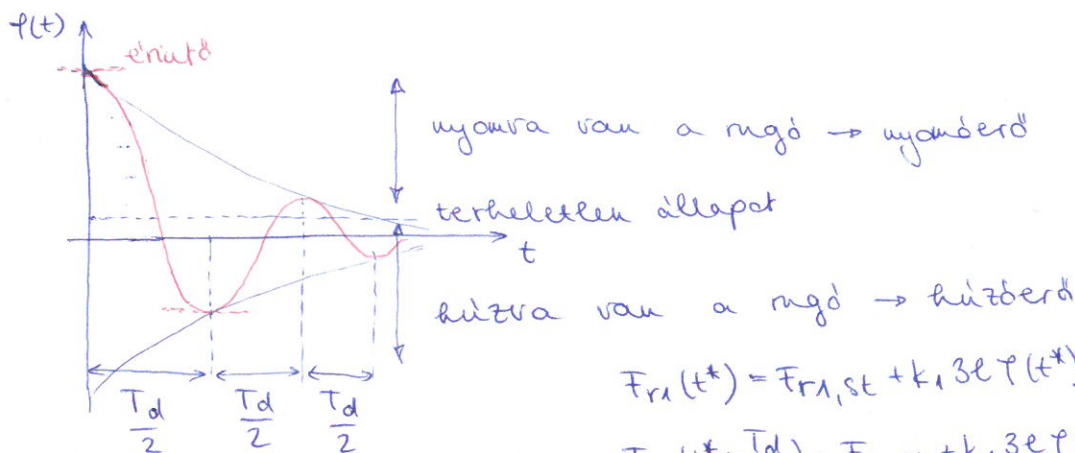 φ(t)
érintő
nyomva van a rugó → nyomóerő
terheletlen állapot
t
húzva van a rugó → húzóerő
T_d/2 T_d/2 T_d/2
F_{r1}(t*) = F_{r1,st} + k_1 3ℓ φ(t*)